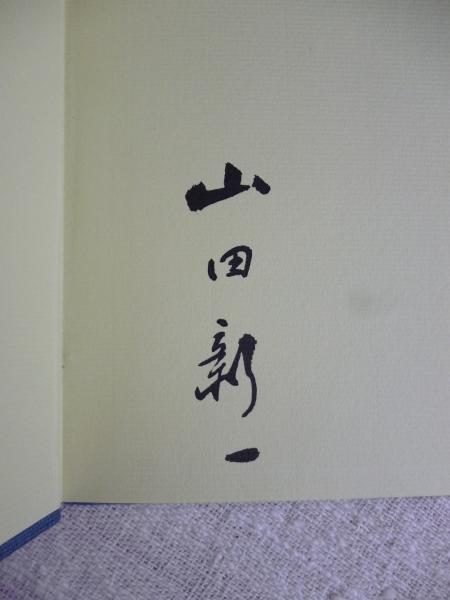 山田新一